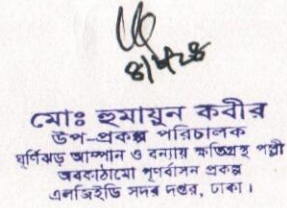 ৪/৭/২৪
মোঃ হুমায়ুন কবীর
উপ-প্রকল্প পরিচালক
ঘূর্ণিঝড় আম্পান ও বন্যায় ক্ষতিগ্রস্থ পল্লী
অবকাঠামো পূণর্বাসন প্রকল্প
এলজিইডি সদর দপ্তর, ঢাকা।